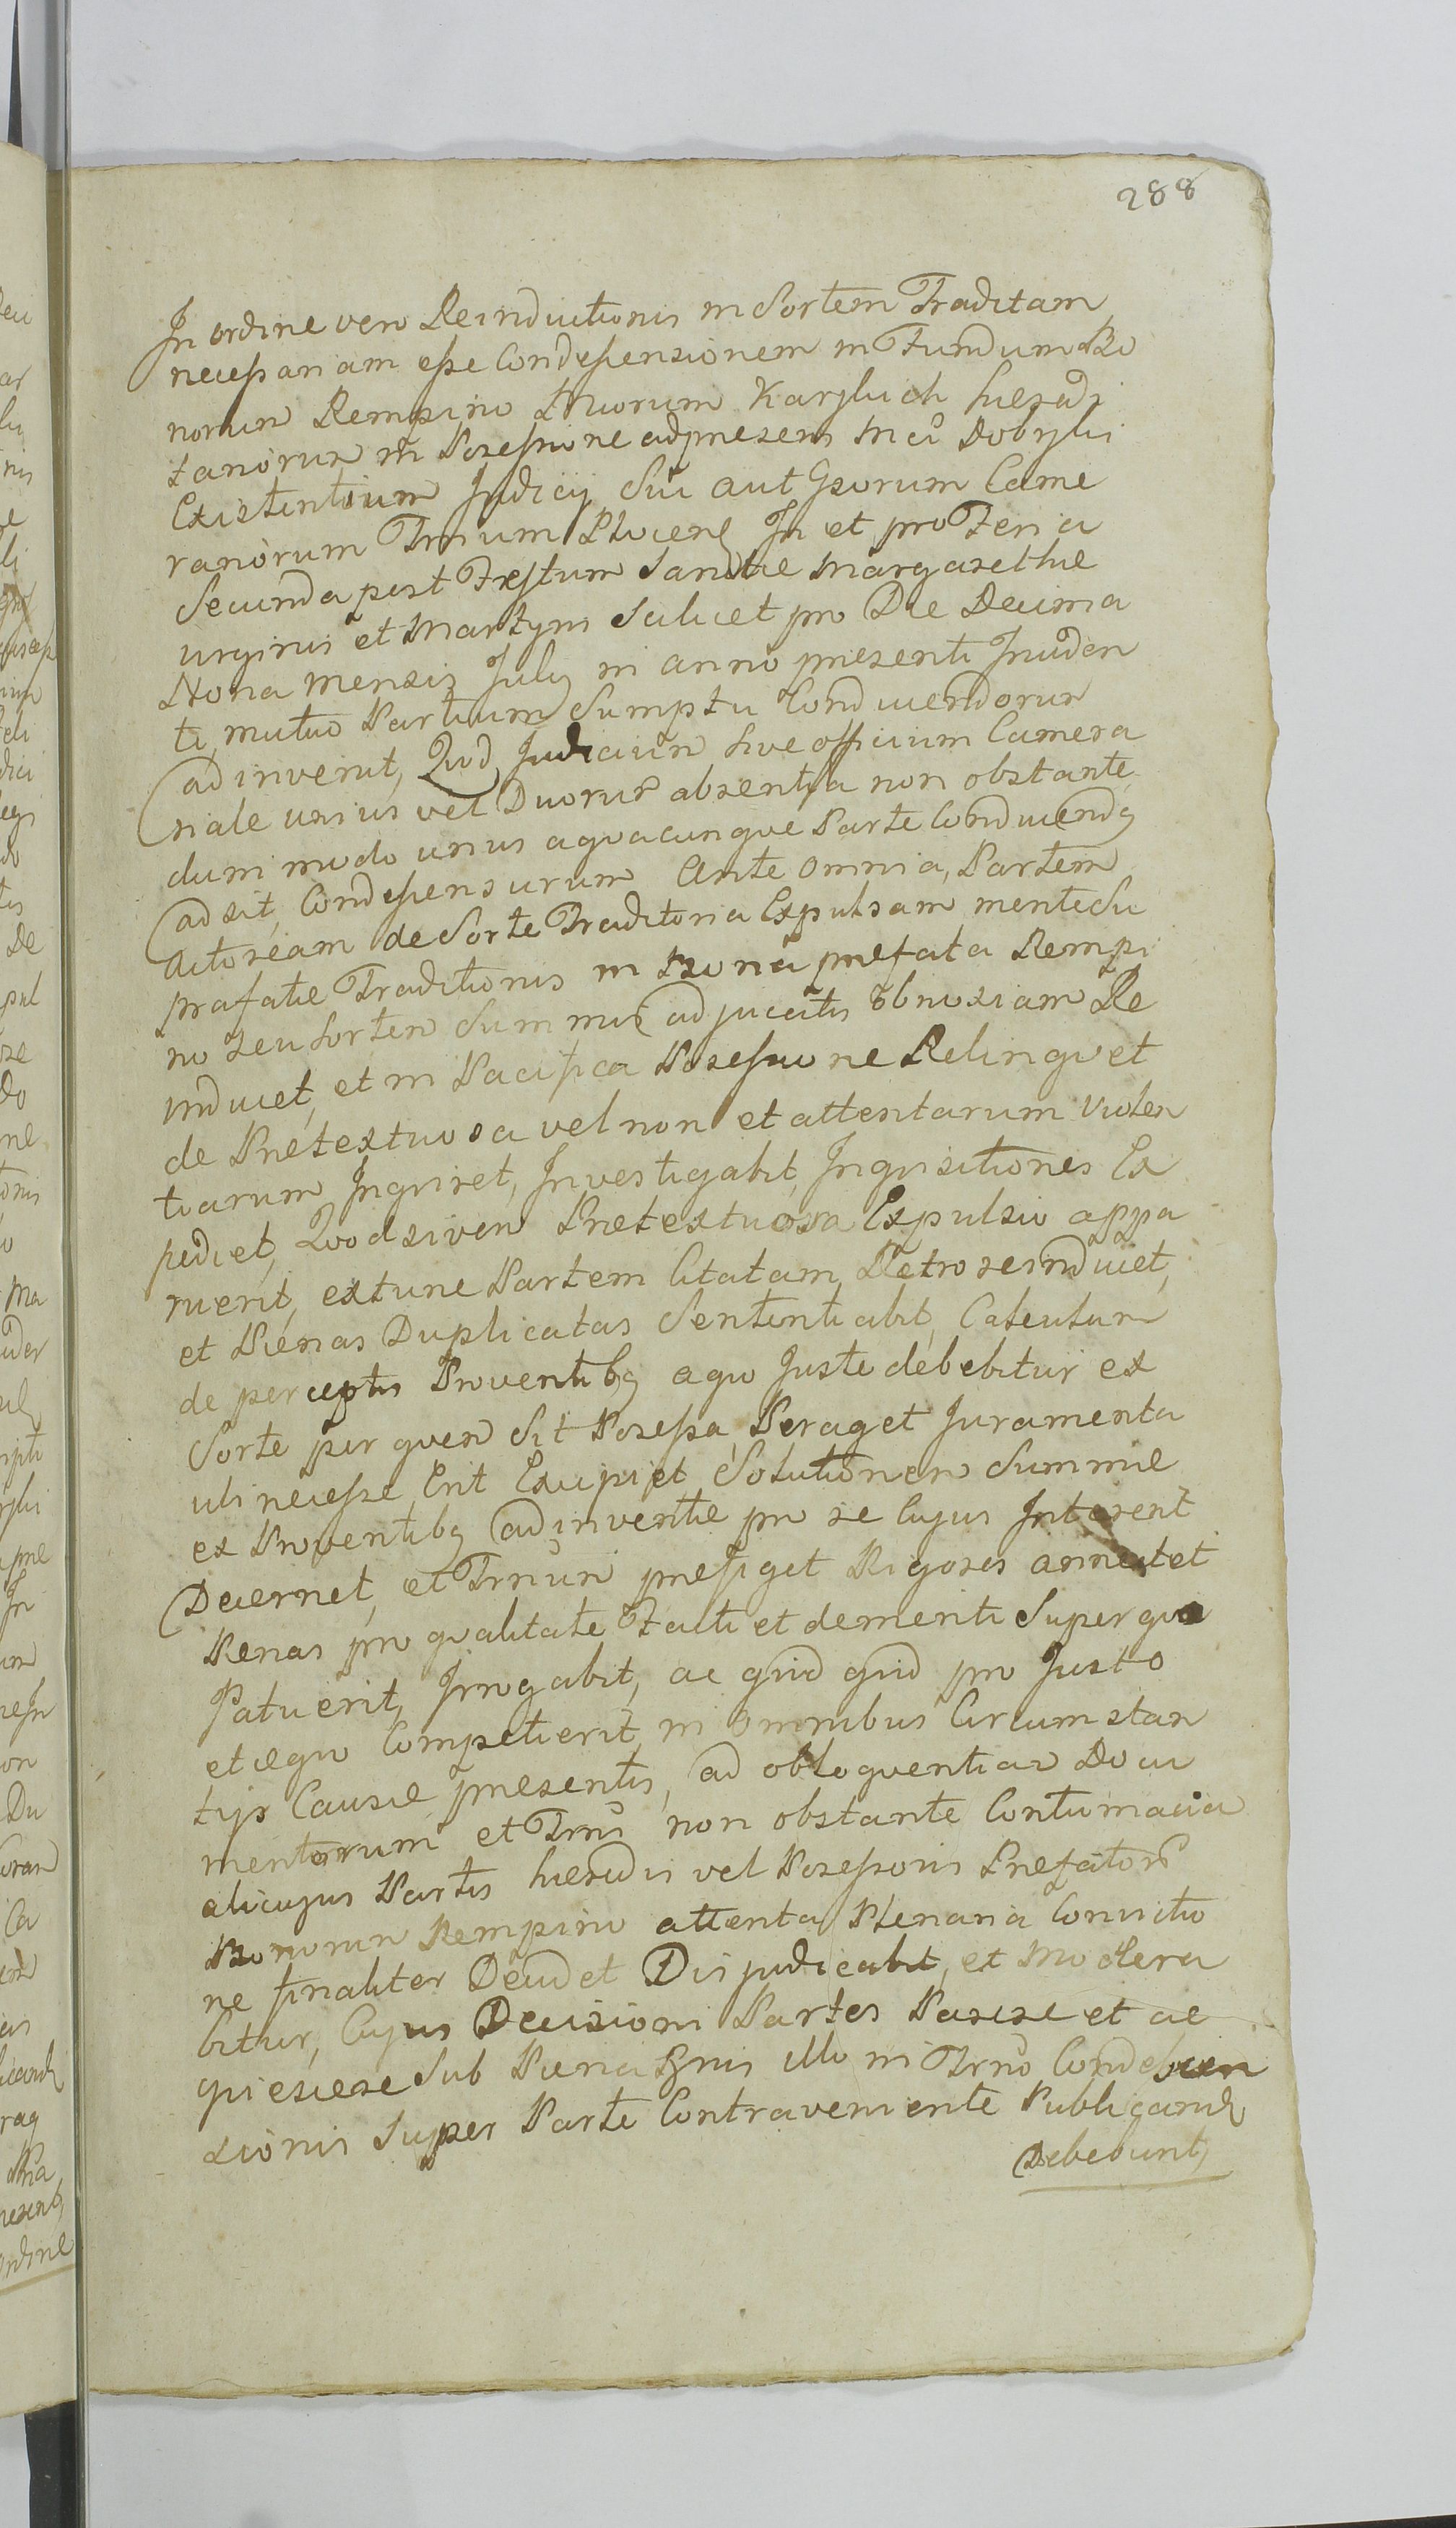 288
In ordine vero Reinductionis in Sortem Traditam
necessariam esse Condescensionem in Fundum Bo
norum Rempino Gnorum Karskich hæredi
tariorum in Possessione ad præsens Mci Dobrski
Existentium Judicij Sui aut Gsorum Came
rariorum Trium Plocens In et pro Feria
Secunda post Festum Sanctæ Margarethæ
Virginis et Martyris Scilicet pro Die Decima
Nona mensis Julij in anno præsenti Inciden
ti, mutuo Partium Sumptu Conducendorum
adinvenit, Qud Judicium sive officium Camera
riale unius vel Duorum absentia non obstante
dum modo unus a quacunque Parte Conducendg
adsit, Condescensurum Ante omnia, Partem
Actoream de Sorte Traditoria Expulsam mente Su
præfatæ Traditionis in Bona præfata Rempi
no seu Sortem Summis adjucatis obnoxiam Re
inducet, et in Pacifica Possessione Relinquet
de Prætextuosa vel non et attentarum Violen
tiarum Inquiret, Investigabit, Inquisitiones Ex
pediet, Quod si vero Prætextuosa Expulsio appa
ruerit, ex tunc Partem Citatam Retro reinducet,
et Pœnas Duplicatas Sententiabit, Calculum
de perceptis Proventibg a quo Juste debebitur ex
Sorte per quem Sit Possessa, Peraget Juramenta
ubi necesse Erit Excipiet, Solutionem Summæ
ex Proventibg adinventæ pro se Cujus Intererit
Decernet, et Trnum præfiget Rigores annectet
Penas pro qualitate Facti et demeriti Super quo
Patuerit, Irrogabit, ac quid quid pro Justo
et æquo Competierit, in Omnibus Circumstan
tijs Causæ præsentis, ad obloquentiam Docu
mentorum et Trni non obstante Contumacia
alicujus Partis hæredis vel Possessoris Præfator
Bonorum Rempino attenta Plenaria Convictio
ne finaliter Decidet Disjudicabit, et Modera
bitur, Cujus Decisioni Partes Parere et ac
quiescere Sub Pœna Bnis illo in Trno Condescen
sionis Super Parte Contraveniente Publicand
Debebunt,